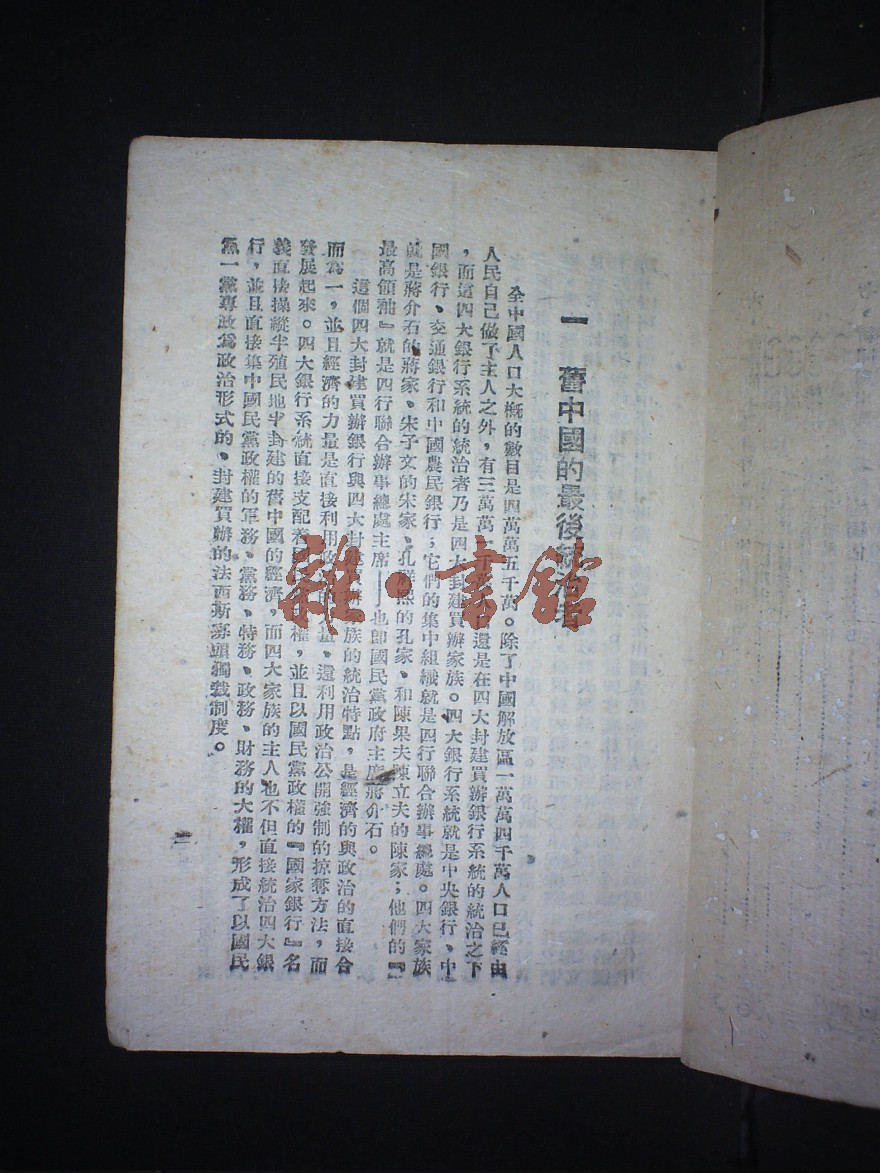 一　舊中國的最後統治者
全中國人口大概的數目是四萬萬五千萬。除了中國解放區一萬萬四千萬人口已經由
人民自己做了主人之外，有三萬萬一千萬人口還是在四大封建買辦銀行系統的統治之下
，而這四大銀行系統的統治者乃是四大封建買辦家族。四大銀行系統就是中央銀行、中
國銀行、交通銀行和中國農民銀行；它們的集中組織就是四行聯合辦事總處。四大家族
就是蔣介石的蔣家、宋子文的宋家、孔祥熙的孔家、和陳果夫陳立夫的陳家；他們的『
最高領袖』就是四行聯合辦事總處主席——也即國民黨政府主席蔣介石。
這個四大封建買辦銀行與四大封建買辦家族的統治特點，是經濟的與政治的直接合
而為一，並且經濟的力量是直接利用政治，還利用政治公開強制的掠奪方法，而
發展起來。四大銀行系統直接支配着國權，並且以國民黨政權的『國家銀行』名
義直接操縱半殖民地半封建的舊中國的經濟，而四大家族的主人也不但直接統治四大銀
行，並且直接集中國民黨政權的軍務、黨務、特務、政務、財務的大權，形成了以國民
黨一黨專政為政治形式的、封建買辦的法西斯寡頭獨裁制度。
雜·書館